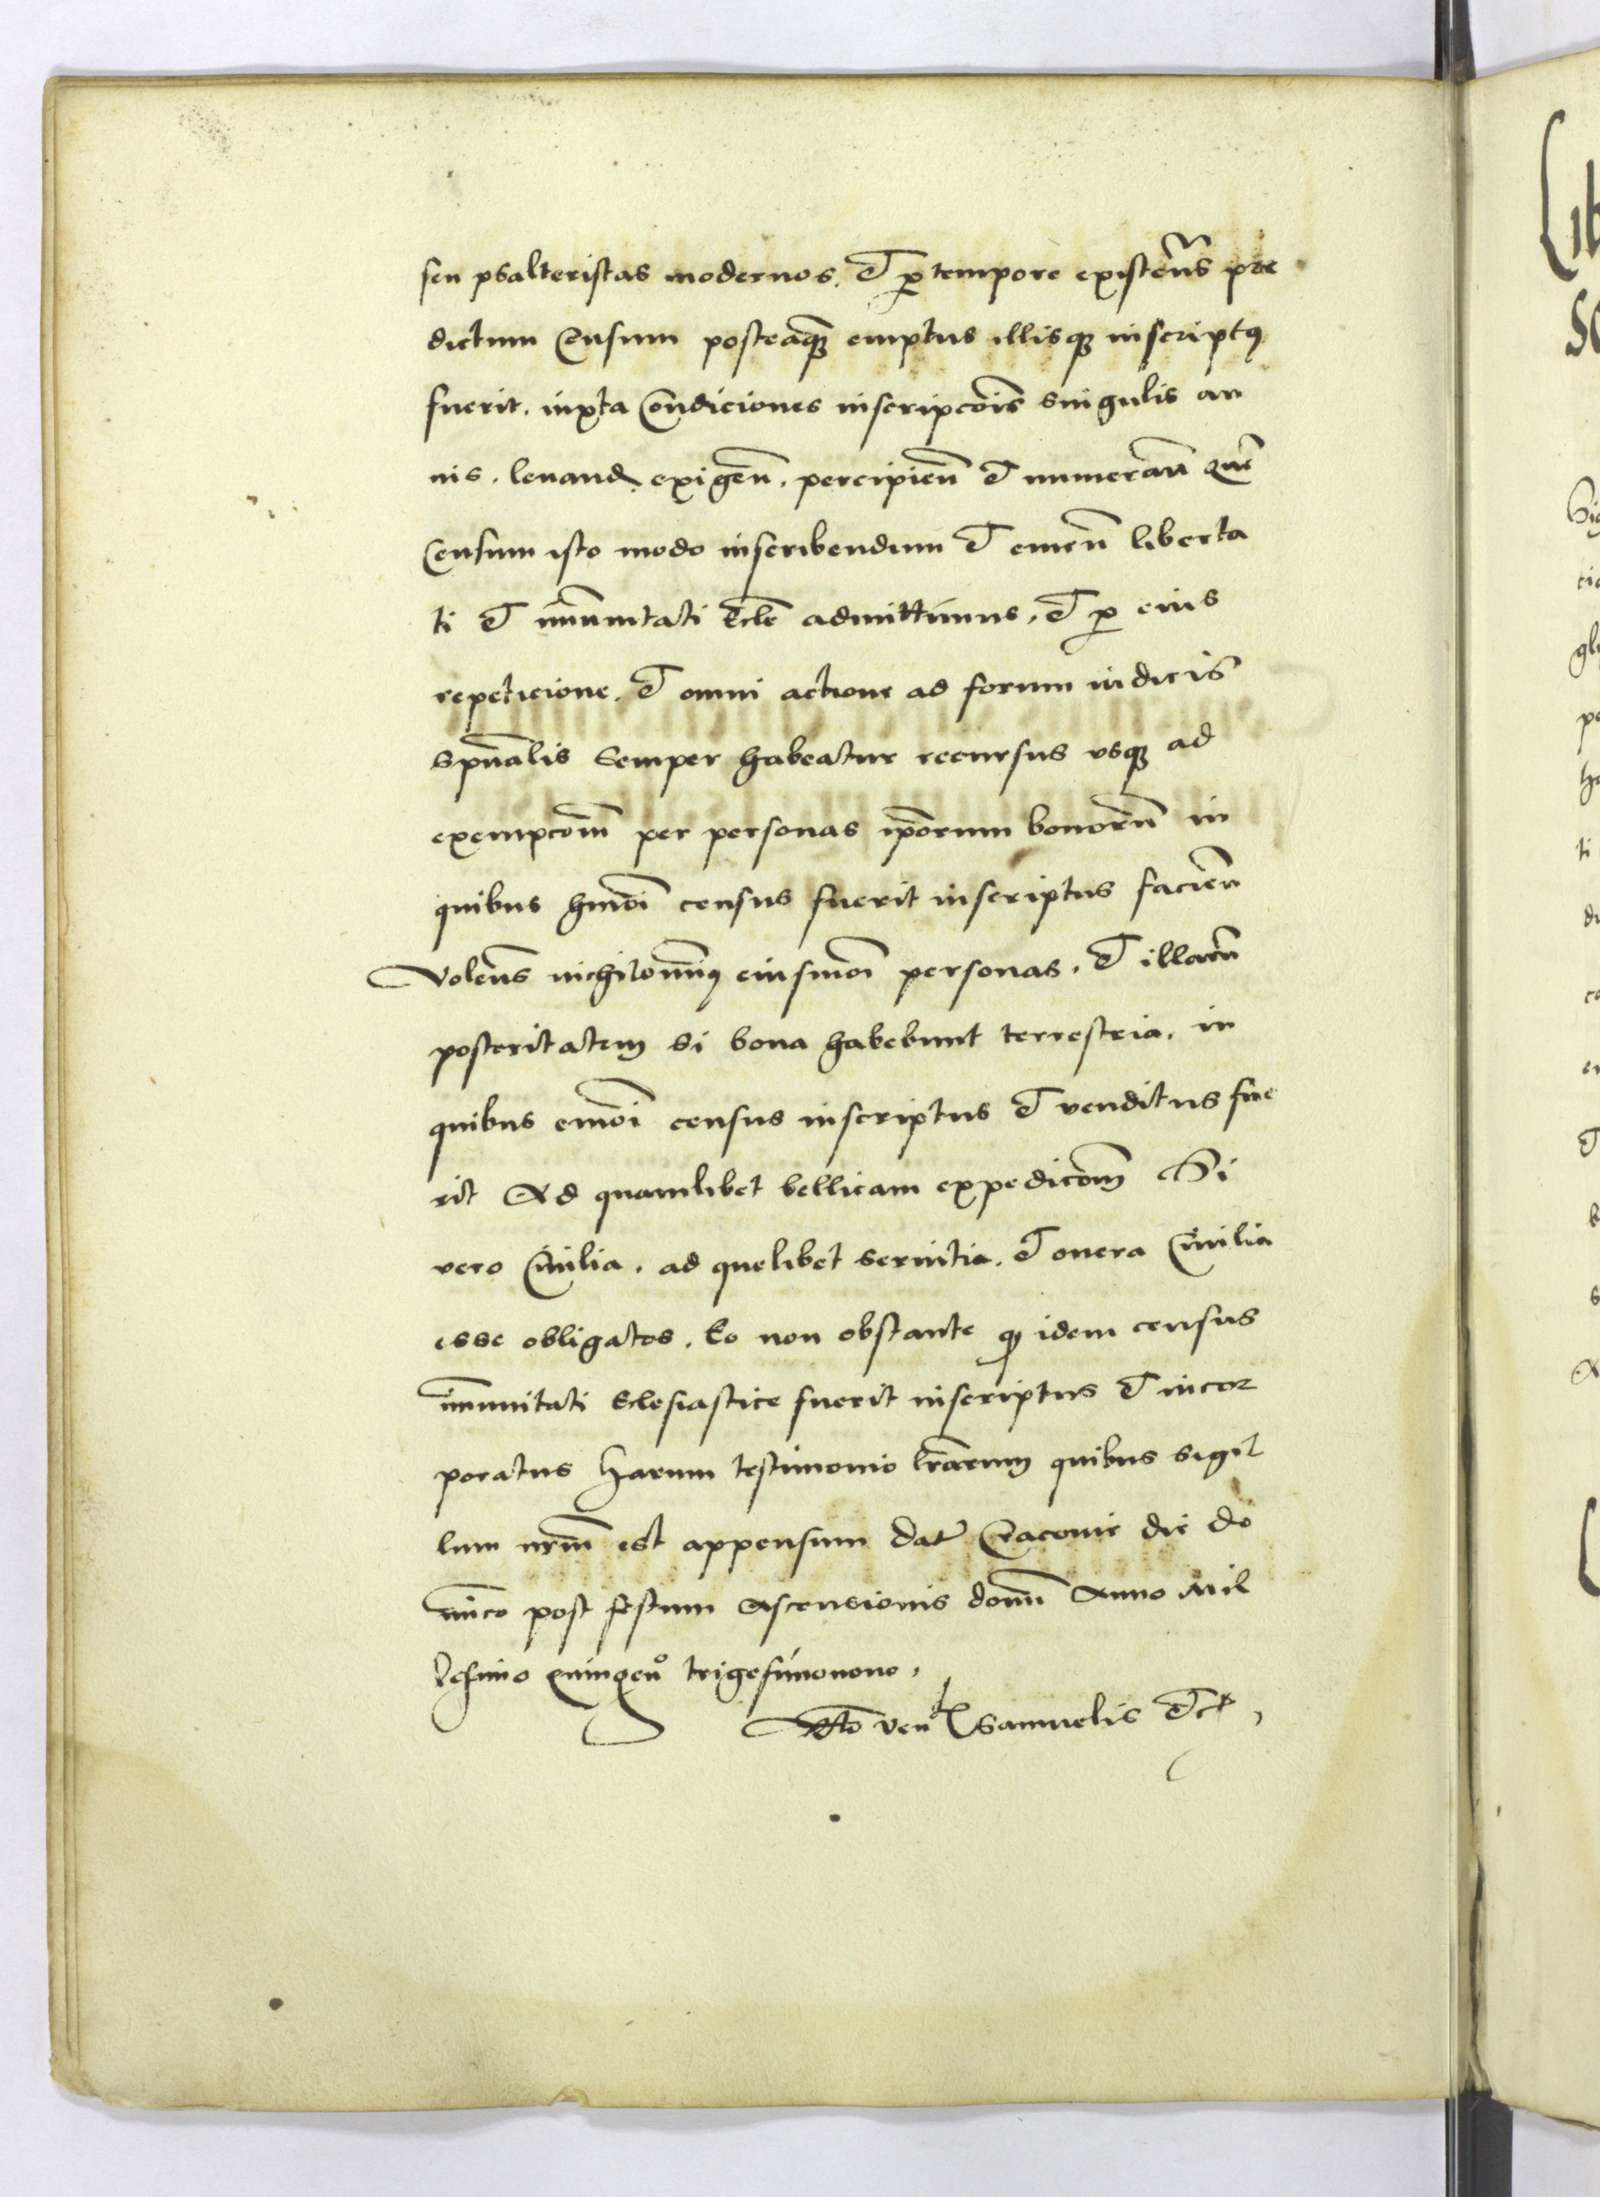 seu psalteristas modernos. Et p tempore existen̄s pre
dictum Censum posteaq̄ emptus illisq̨ inscriptꝰ
fuerit. iuxta Condiciones inscripcōis singulis an
nis. leuand exigen̄. percipien̄ et numeran̄ Que̅
Censum isto modo inscribendum et emen̄ liberta
ti et im̄unitati Eccle̅ admittimus. et p eius
repeticione. et omni actione ad forum iudicis
sp̄ualis semper habeatur recursus vsq̨ ad
exempcōm per personas ip̄orum bonorū in
quibus hm̄oi census fuerit inscriptus facien̄
Volen̄s nichilomīnꝰ eiusmoi personas. et illarū
posteritatem si bona habebunt terrestria. in
quibus em̄oi census inscriptus et venditus fue
rit Ad quamlibet bellicam expedicōm Si
vero Ciuilia. ad quelibet seruitia. et onera Ciuilia
esse obligatos. Eo non obstante qꝫ idem census
im̄unitati Eclesiastice fuerit inscriptus et incor
poratus Harum testimonio lr̄arum quibus sigil
lum nr̄m est appensum Dat̄ Cracouie die do
mīco post festum Ascensionis domī Anno Mil
lesimo Quingenᵒ trigesimonono.
Ven Samuelis Etc